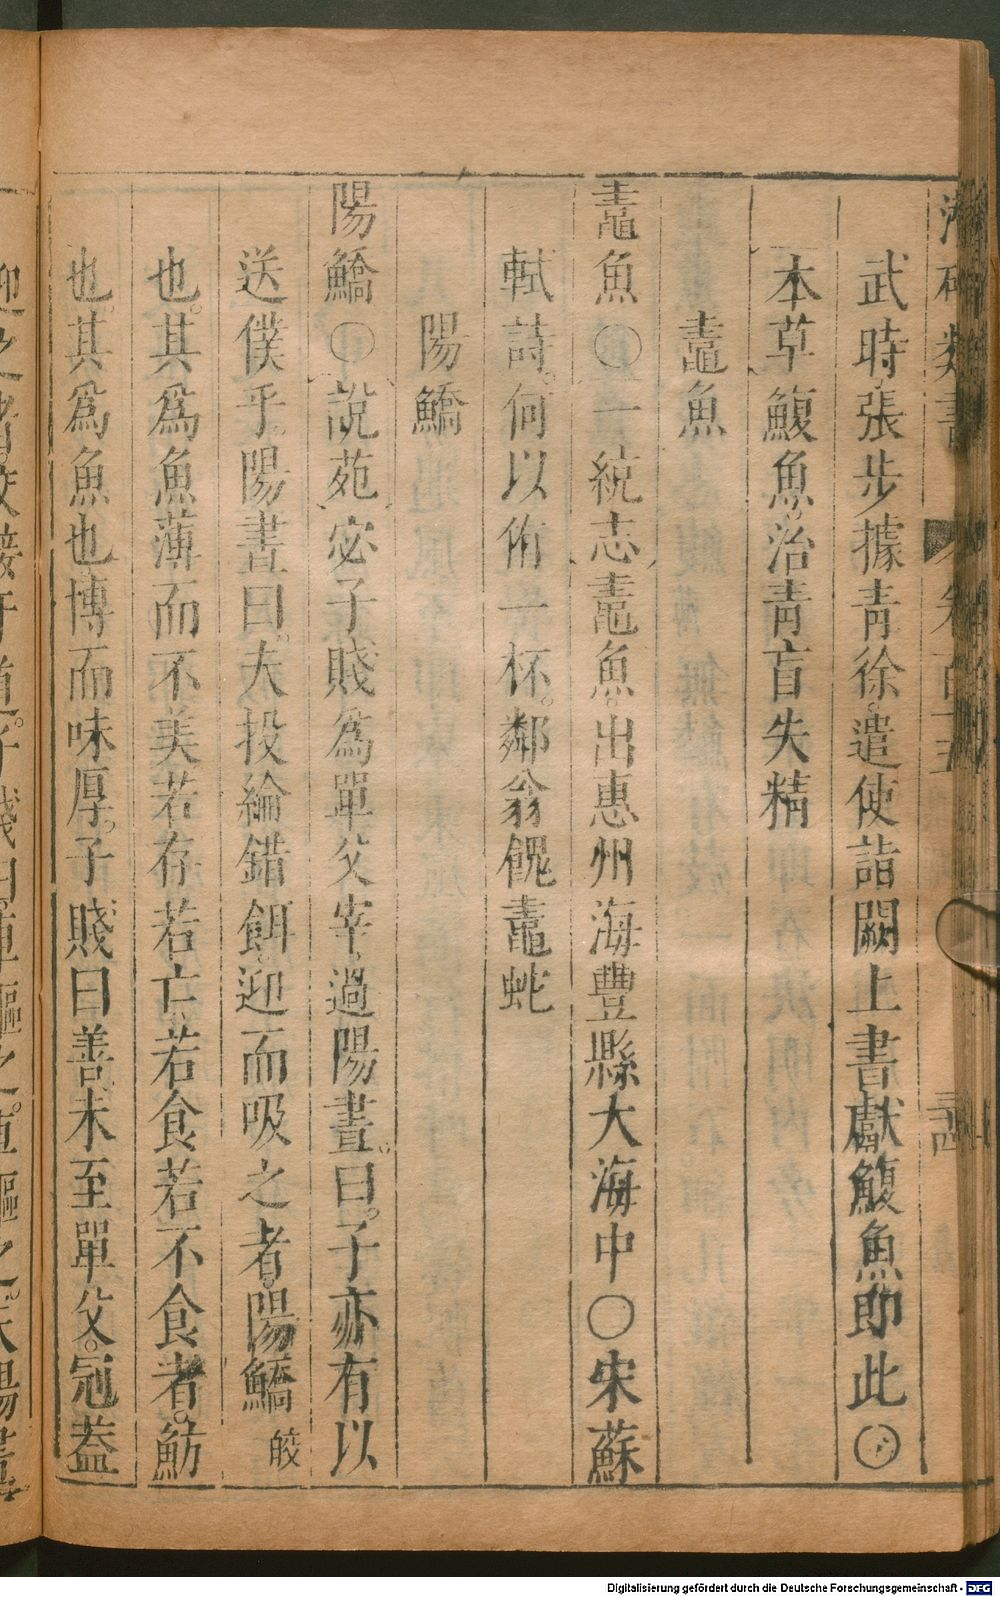 武時張步據青徐遣使詣闕上書獻鰒魚即此〇
本草鰒魚治青盲失精
鼃魚
鼃魚〇一統志鼃魚出惠州海豐縣大海中〇宋蘇
軾詩何以侑一杯鄰翁餽鼃蛇
陽鱎
陽鱎〇說苑宓子賤爲單父宰過陽晝曰子亦有以
送僕乎陽晝曰夫投綸錯餌迎而吸之者陽鱎皎
也其爲魚薄而不美若存若亡若食若不食者魴
也其爲魚也博而味厚子賤曰善未至單父冠蓋
Digitalisierung gefördert durch die Deutsche Forschungsgemeinschaft - DFG